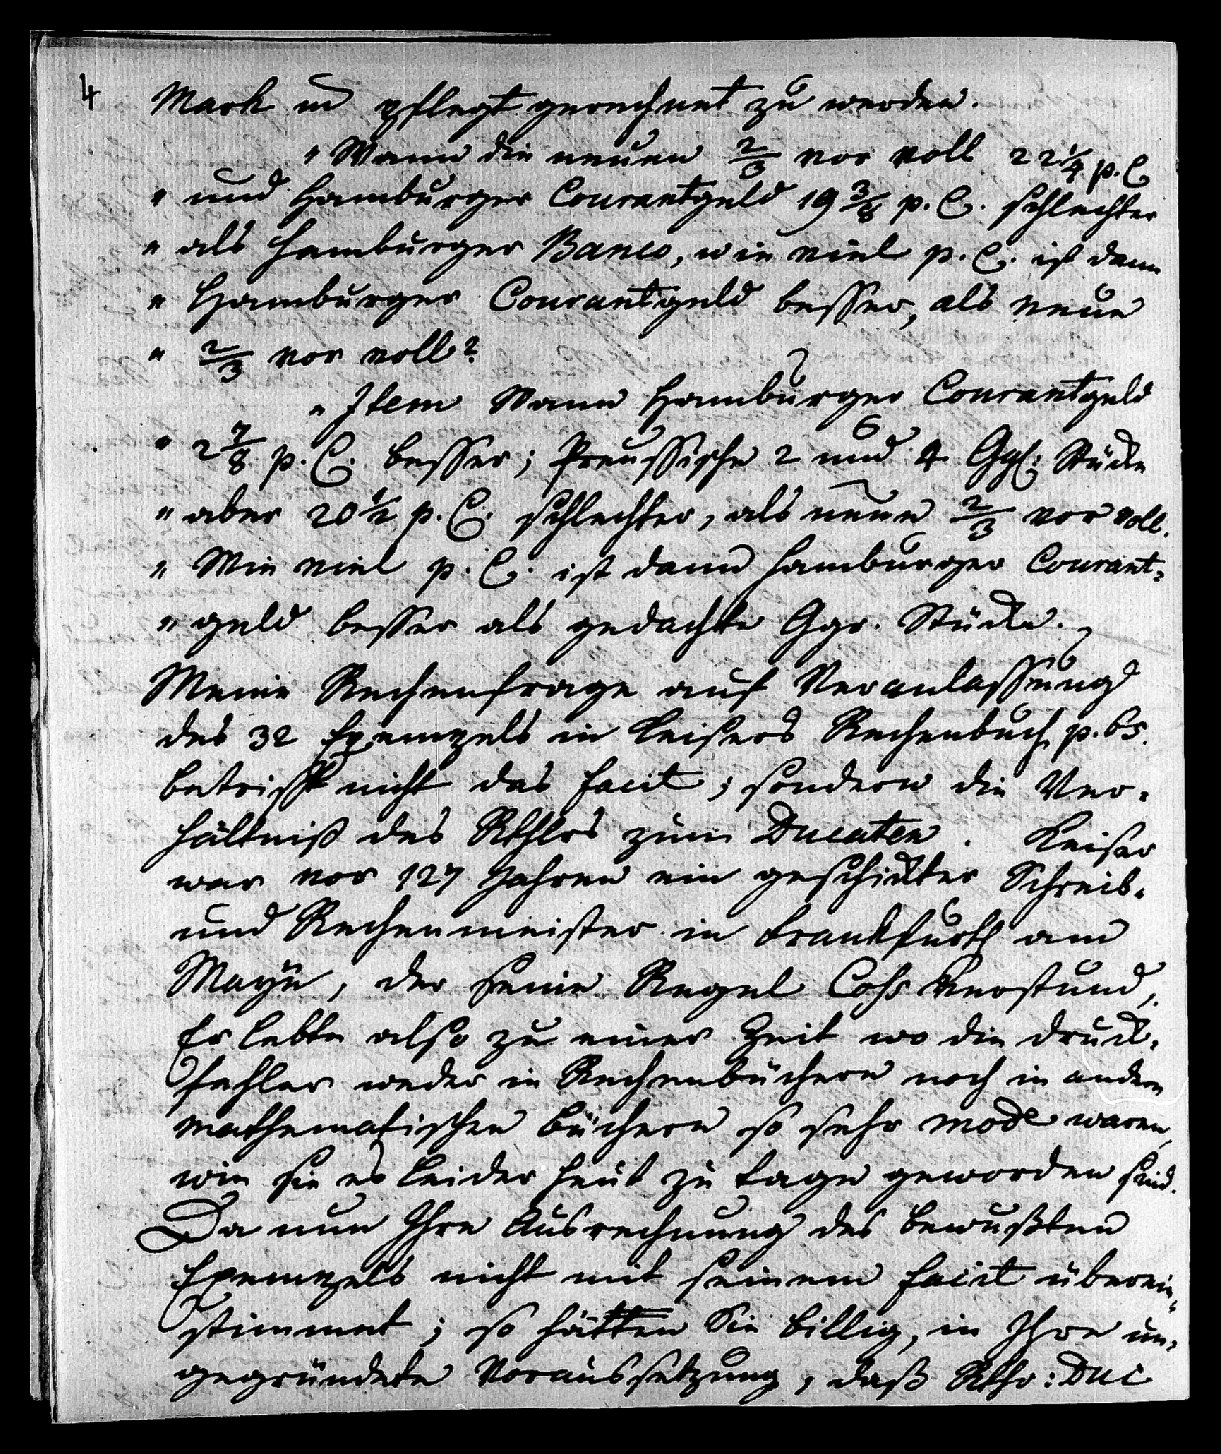 4
Mark in pflegt gerechnet zu werden.
" Wann die neuen 2/3 vor voll 22 1/4 p. C
" und Hamburger Courantgeld 19 3/8 p. C. schlechter
" als Hamburger Banco, wie viel p. C. ist dann
" Hamburger Courantgeld besser, als neue
" 2/3 vor voll?
" Item Wann Hamburger Courantgeld
" 2 7/8 p. C. besser; Preussische 2 und 4 Ggl. Stücke
" aber 20 1/2 p. C. schlechter, als neue 2/3 vor voll.
" Wie viel p. C. ist dann Hamburger Courant-
" geld besser als gedachte Ggr. Stücke.
Meine Rechenfrage auf Veranlassung
des 32 Exempels in Keisers Rechenbuch p. 65.
betrifft nicht das facit; sondern die Ver-
hältniß des Rthlrs zum Ducaten. Keiser
war vor 127 Jahren ein geschickter Schreib-
und Rechenmeister in Frankfurth am
Mayn, der seine Regel Coss verstund,
Er lebte also zu einer Zeit wo die druck-
fehler weder in Rechenbüchern noch in andern
mathematischen Büchern so sehr mode waren,
wie sie es leider heut zu tage geworden sind.
Da nun Ihre Ausrechnung des bewußten
Exempels nicht mit seinem facit überein-
stimmet; so hätten Sie billig, in Ihre un-
gegründete Voraussetzung, daß Rthr: Duc